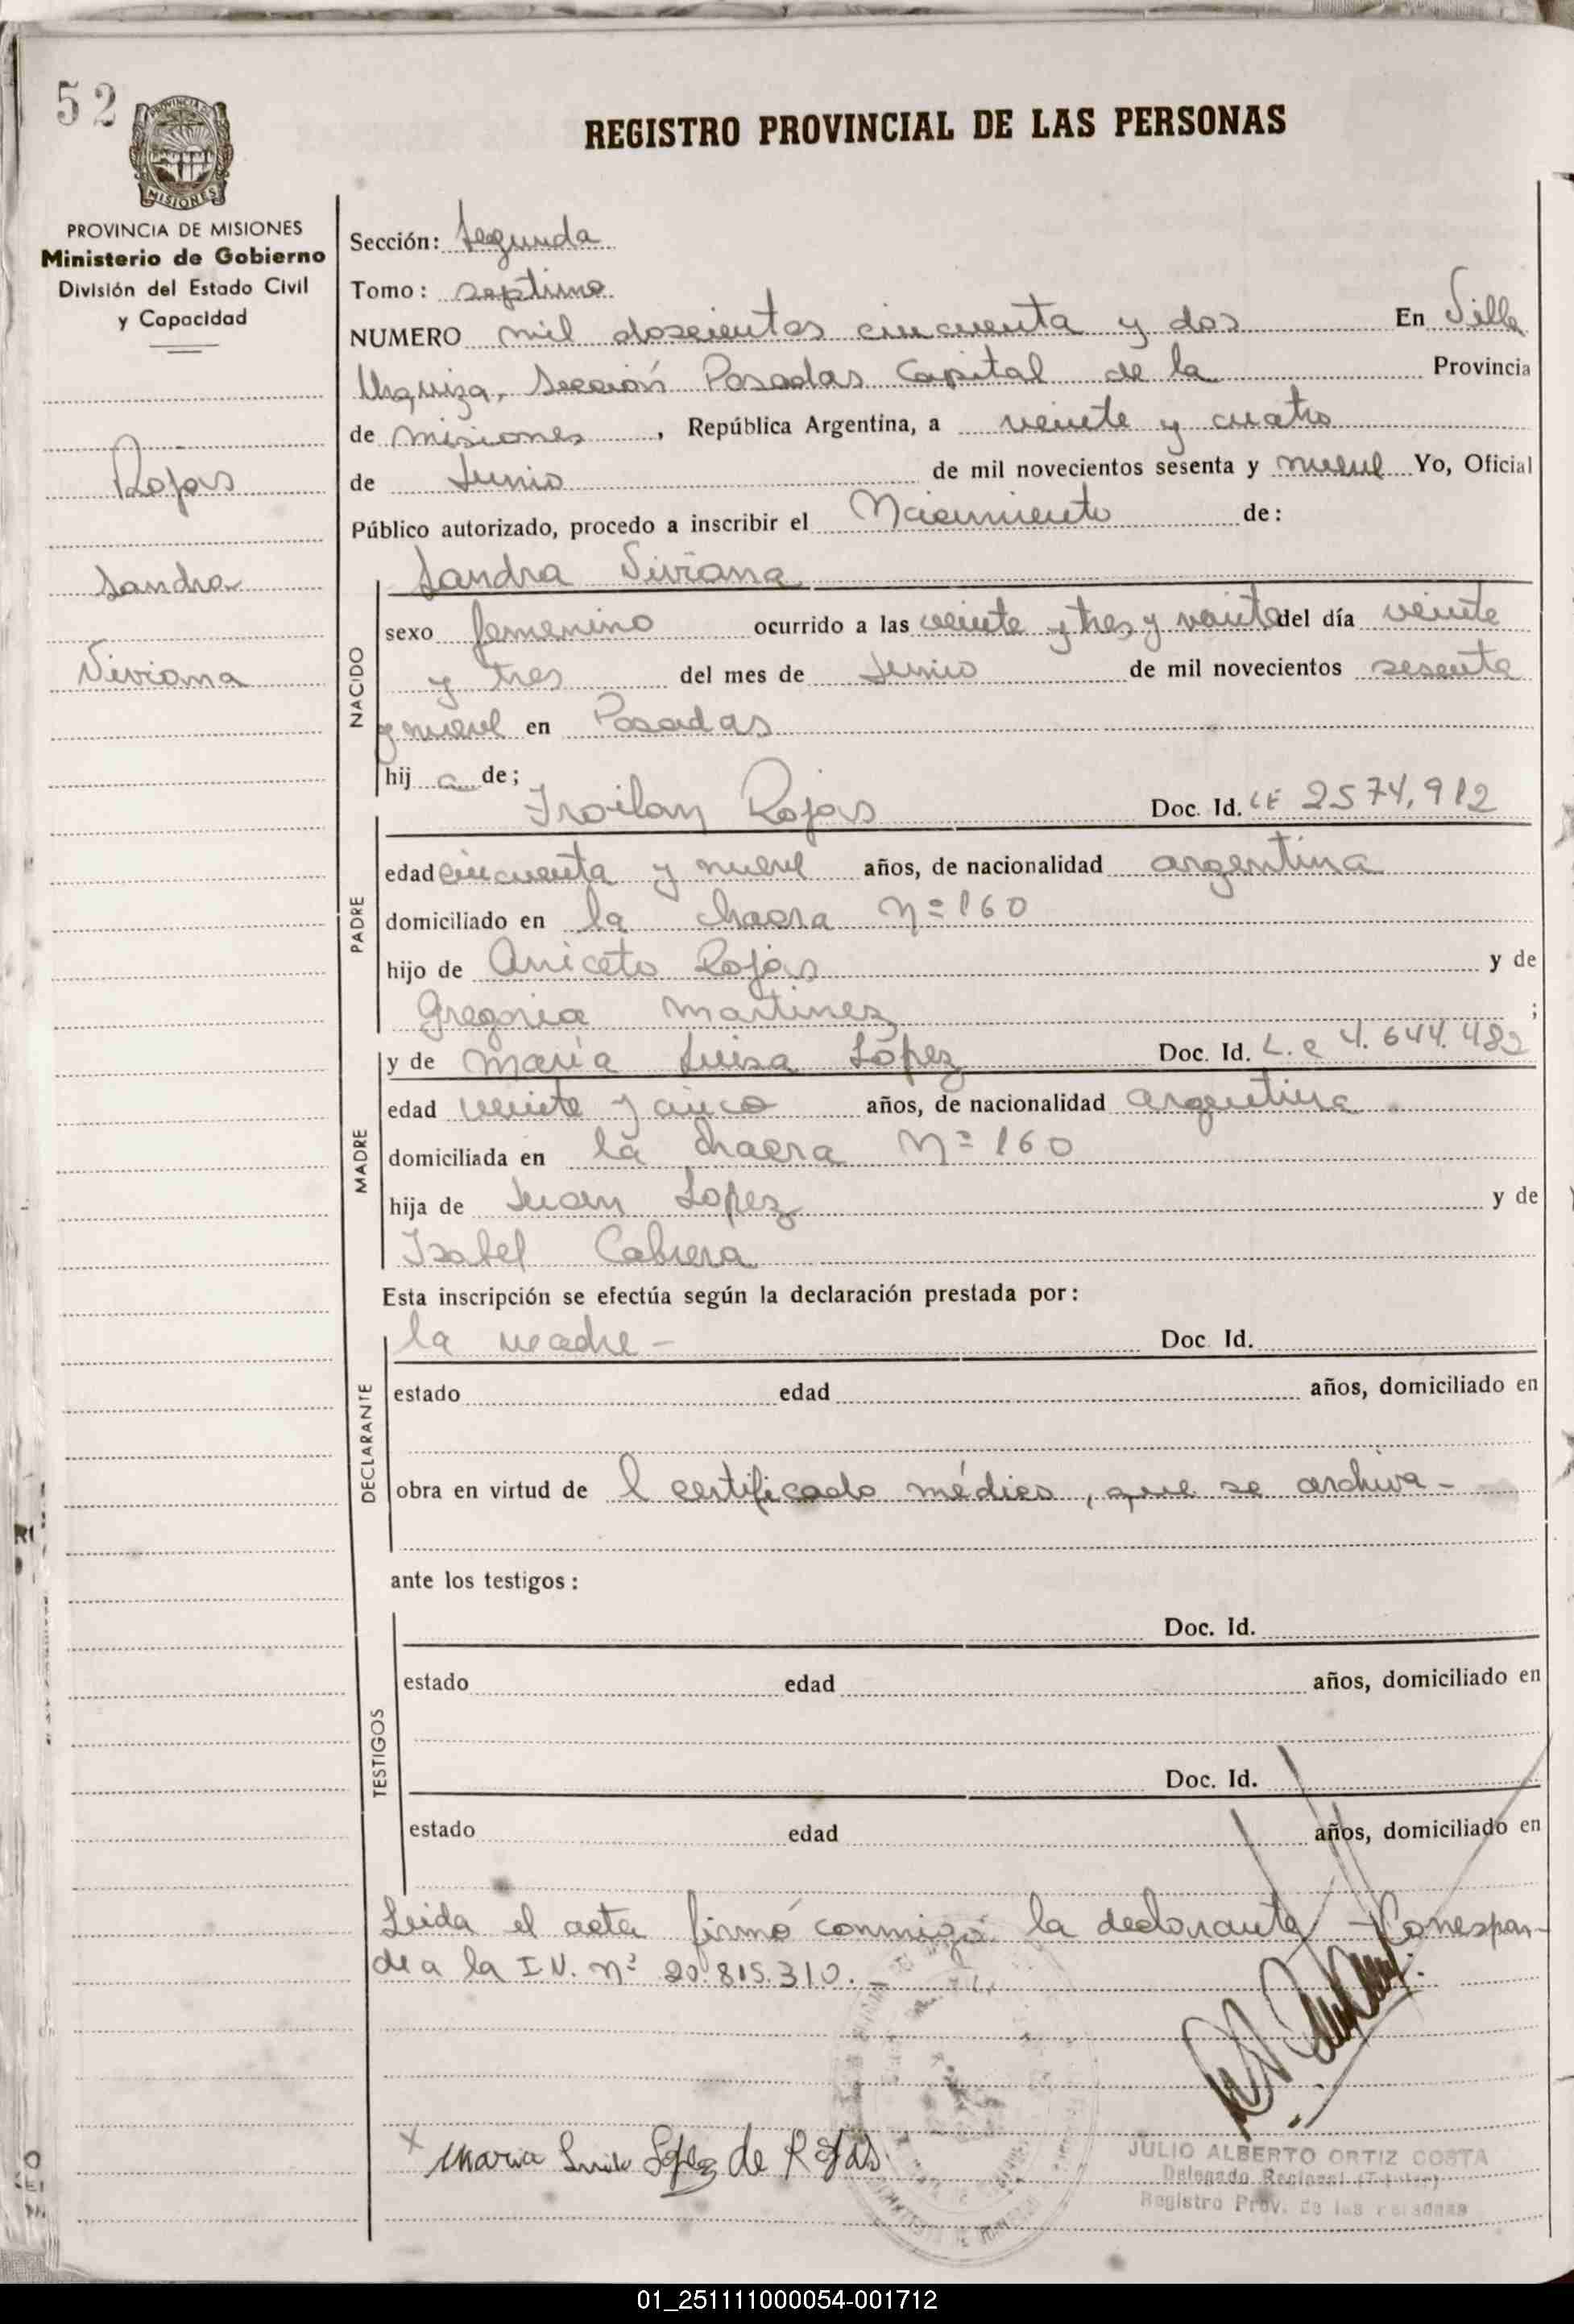 52
PROVINCIA DE
MISIONES
REGISTRO PROVINCIAL DE LAS PERSONAS
PROVINCIA DE MISIONES
Ministerio de Gobierno
División del Estado Civil
y Capacidad
Rojas
Sandra
Viviana
Sección: Segunda
Tomo: septimo
NUMERO mil doscientos cincuenta y dos En Villa
Urquiza, Sección Posadas Capital de la Provincia
de Misiones, República Argentina, a veinte y cuatro
de Junio de mil novecientos sesenta y nueve Yo, Oficial
Público autorizado, procedo a inscribir el Nacimiento de:
NACIDO
Sandra Viviana
sexo femenino ocurrido a las veinte y tres y veinte del día veinte
y tres del mes de Junio de mil novecientos sesenta
y nueve en Posadas
hij a de;
PADRE
Troilan Rojas Doc. Id. LE 2574,912
edad cincuenta y nueve años, de nacionalidad argentina
domiciliado en la chacra Nº 160
hijo de Aniceto Rojas y de
Gregoria Martinez ;
MADRE
y de María Luisa López Doc. Id. L. c 4.644.482
edad veinte y cinco años, de nacionalidad argentina
domiciliada en la chacra Nº 160
hija de Juan Lopez y de
Isabel Cabrera
Esta inscripción se efectúa según la declaración prestada por:
DECLARANTE
la madre - Doc. Id.
estado edad años, domiciliado en
obra en virtud de l certificado médico, que se archiva -
ante los testigos:
TESTIGOS
Doc. Id.
estado edad años, domiciliado en
Doc. Id.
estado edad años, domiciliado en
Leida el acta firmó conmigo la declarante - Correspon-
de a la I.N. nº 20.815.310. -
x Maria Luisa Lopez de Rojas
JULIO ALBERTO ORTIZ COSTA
Delegado Regional (Titular)
Registro Prov. de las Personas
01_251111000054-001712